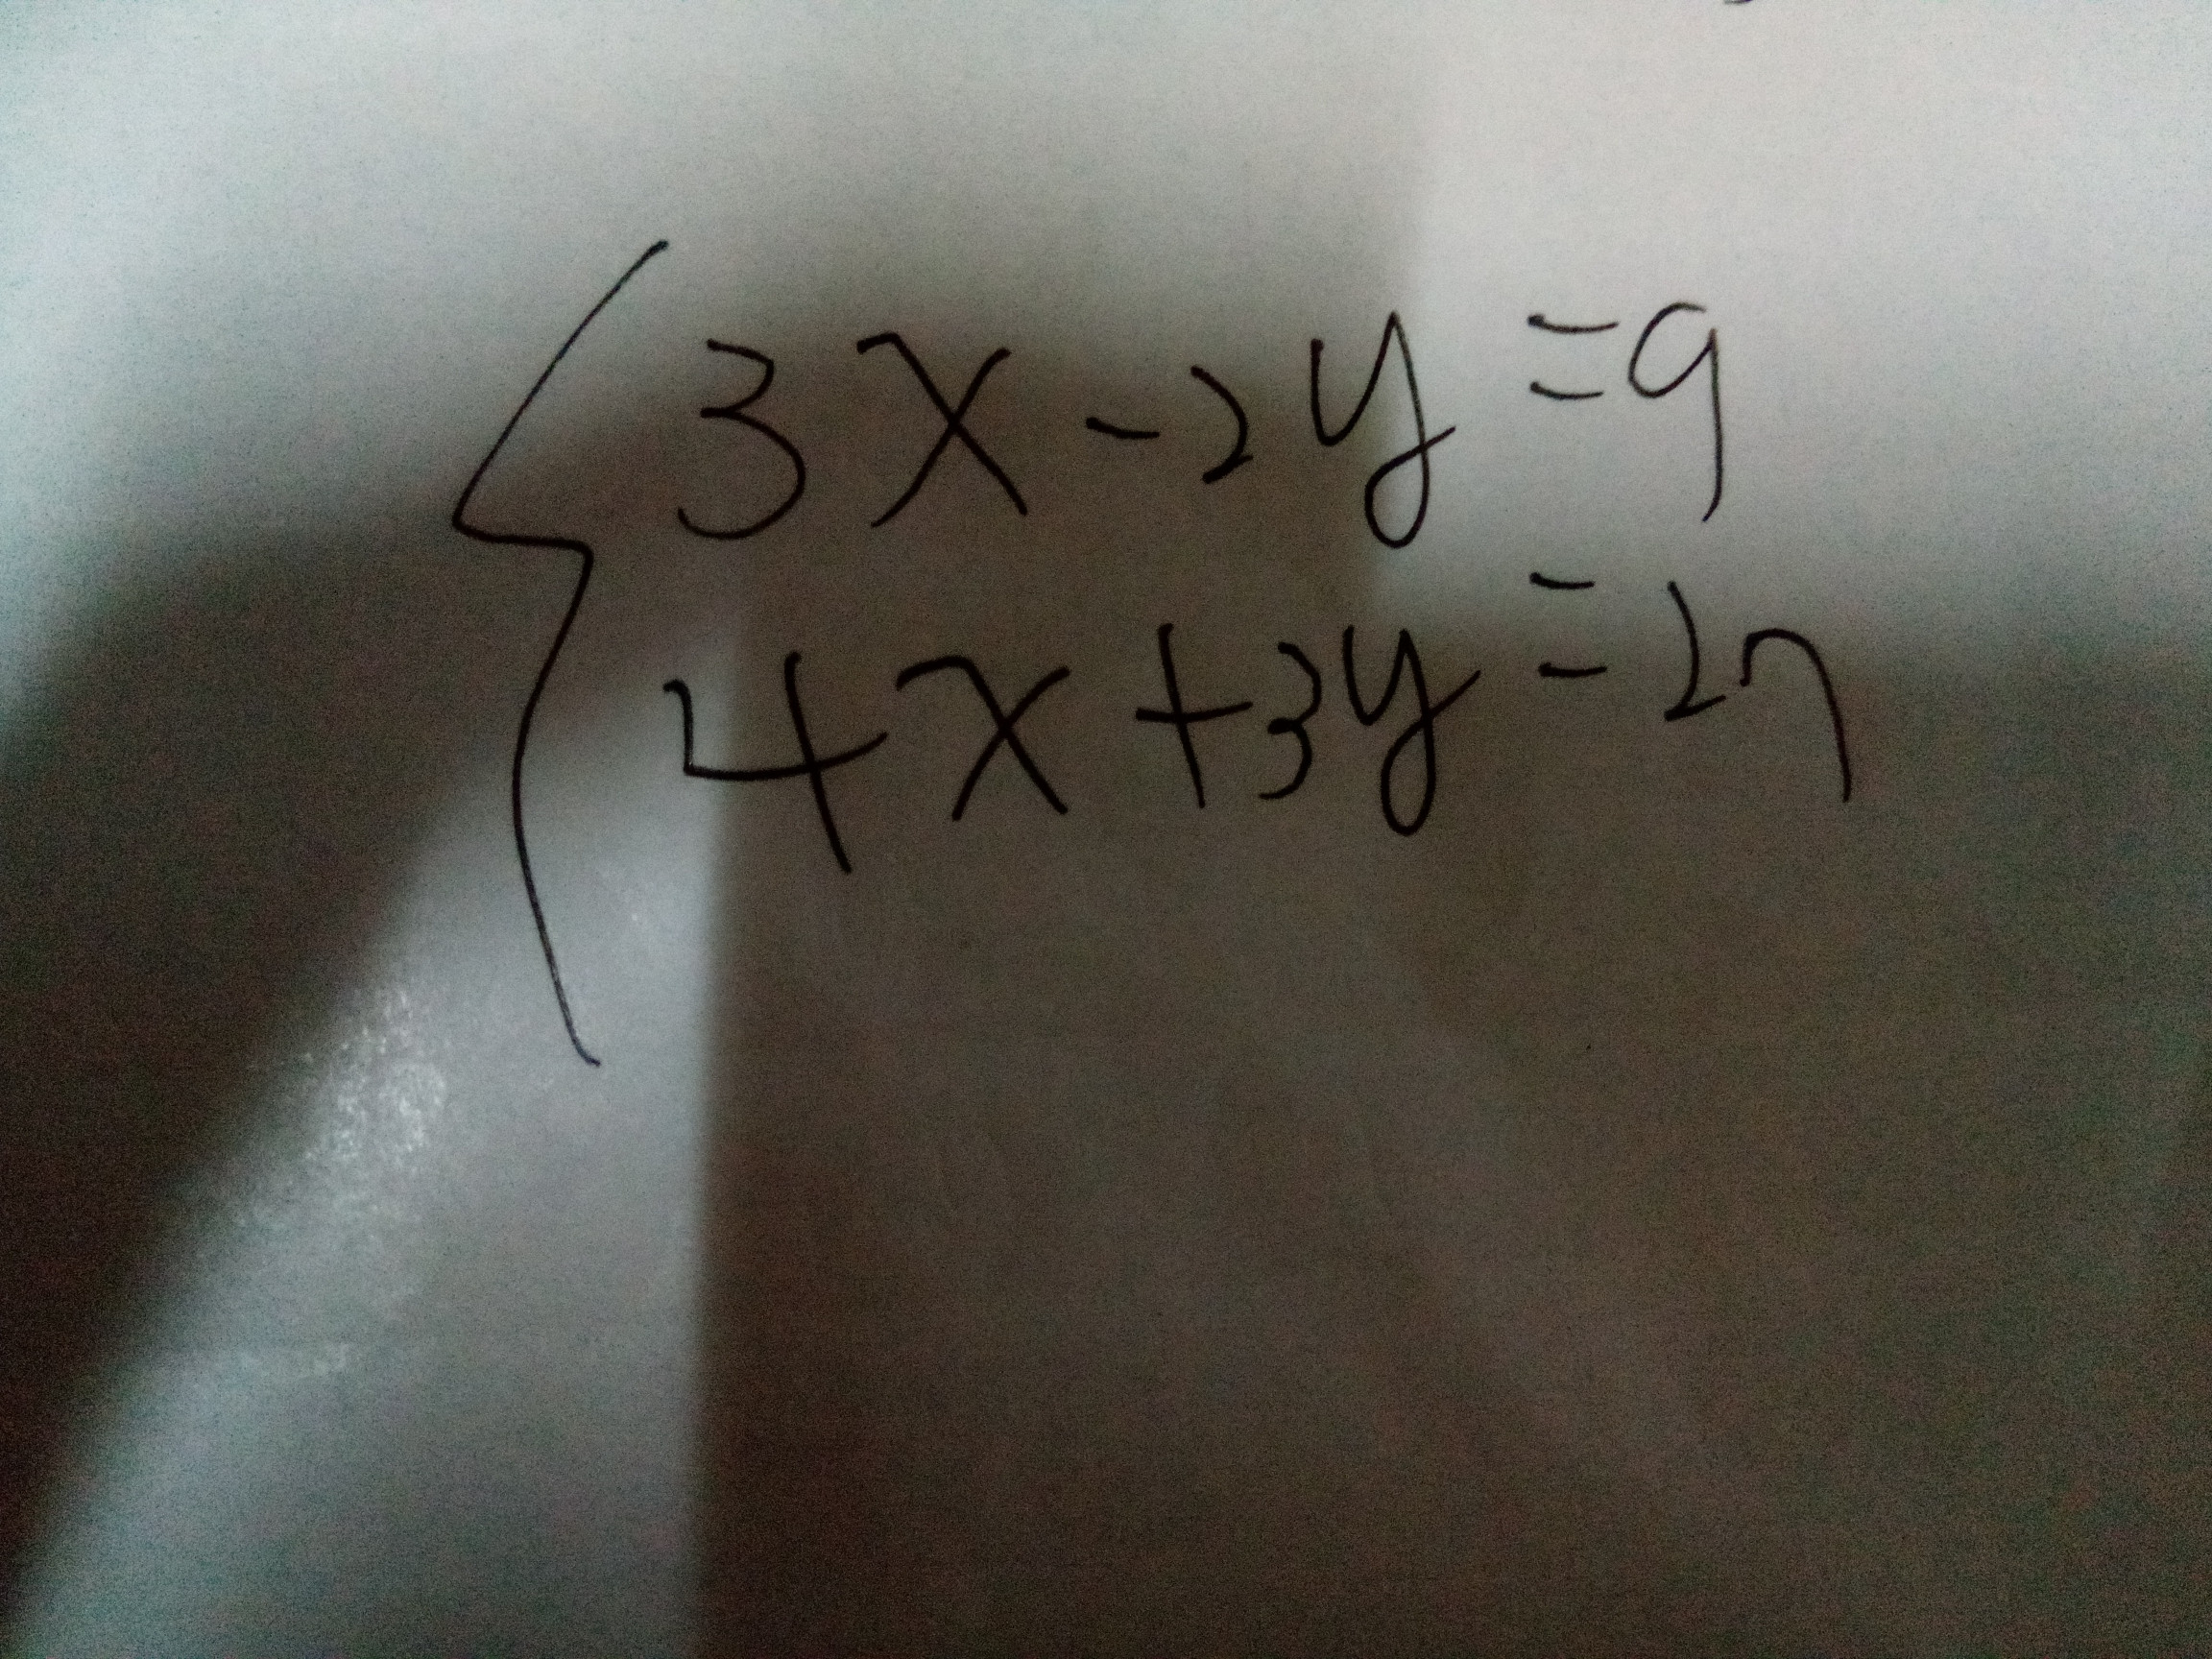 3x-2y=9
4x+3y=27